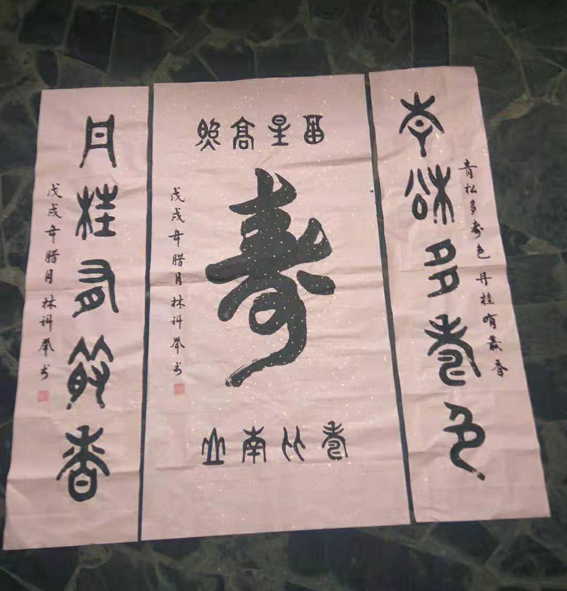 青松多寿色
青松多寿色 丹桂有丛香
福星高照
寿
戊戌年腊月林科举书
寿比南山
丹桂有丛香
戊戌年腊月林科举书